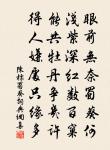 眼前無奈蜀葵何
淺紫深紅數百窠
能共牡丹爭幾許
得人嫌處只緣多
陳標蜀葵詞典網書